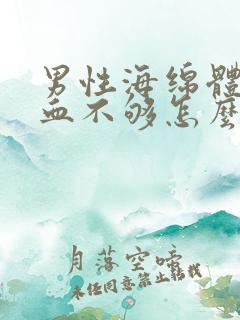 男性海绵體
血不够怎麽
月落空啼
未经同意禁止转载